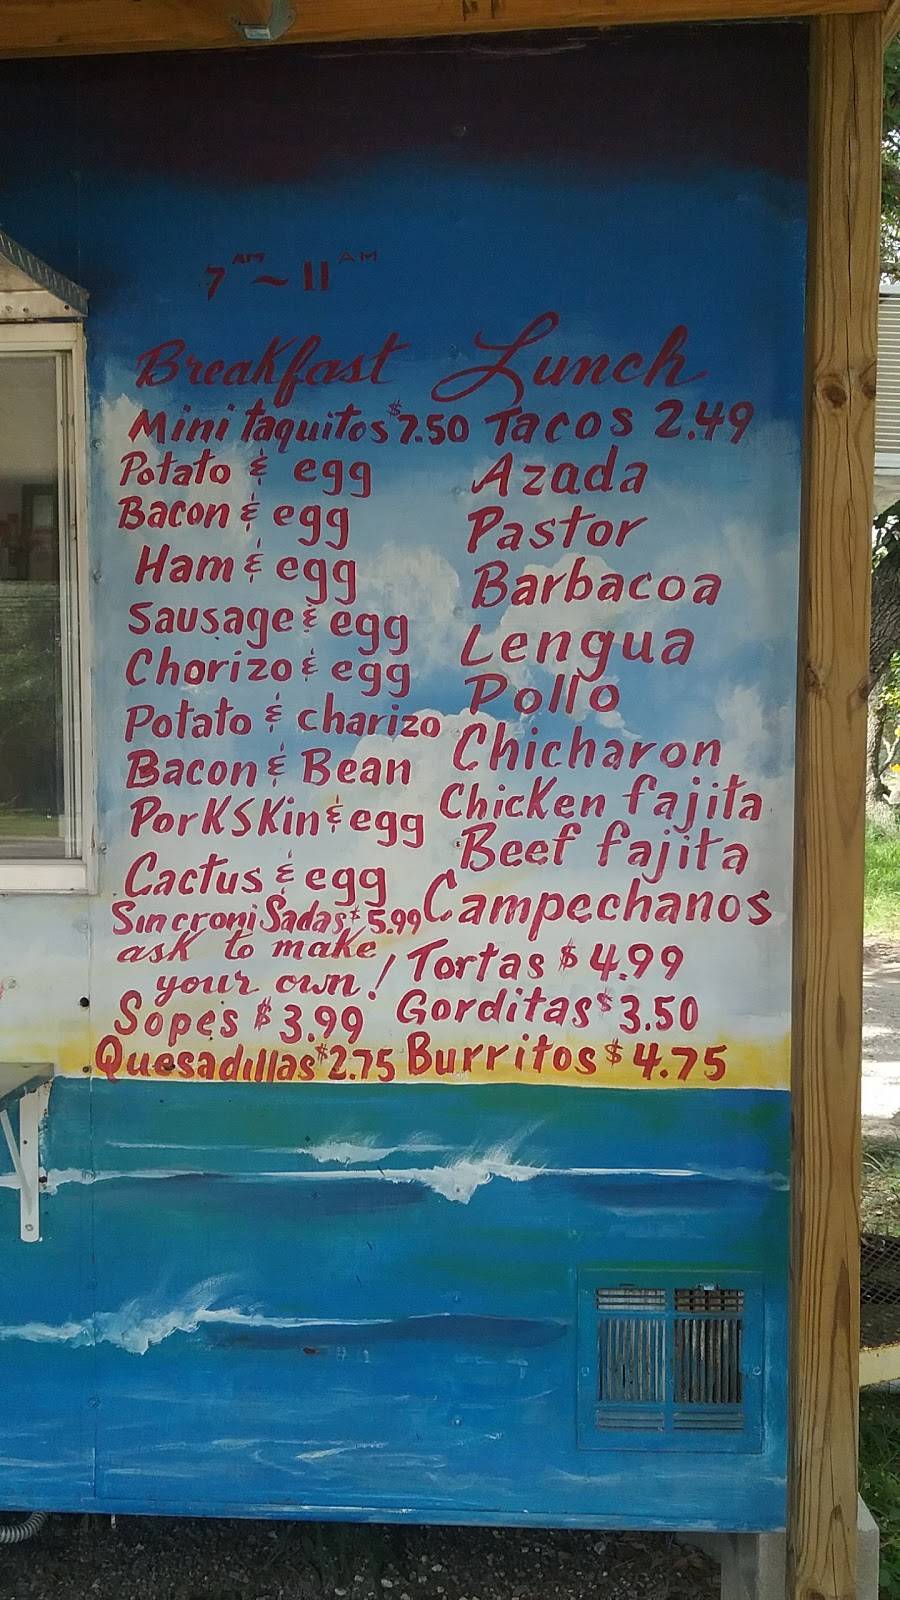 7 AM ~ 11 AM
Breakfast
Mini taquitos $7.50
Potato & egg
Bacon & egg
Ham & egg
Sausage & egg
Chorizo & egg
Potato & charizo
Bacon & Bean
PorKSKin & egg
Cactus & egg
Sincroni Sadas $5.99
ask to make
your own!
Sopes $3.99
Quesadillas $2.75
Lunch
Tacos 2.49
Azada
Pastor
Barbacoa
Lengua
Pollo
Chicharon
Chicken fajita
Beef fajita
Campechanos
Tortas $4.99
Gorditas $3.50
Burritos $4.75